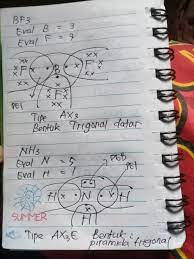 BF3
Eval B = 3
Eval F = 7
F B F
F
PEI
Tipe AX3
Bentuk Trigonal datar
NH3
Eval N = 5
Eval H = 1
PEB
PEI
H N H
H
SUMMER
Tipe AX3E Bentuk :
piramida trigonal